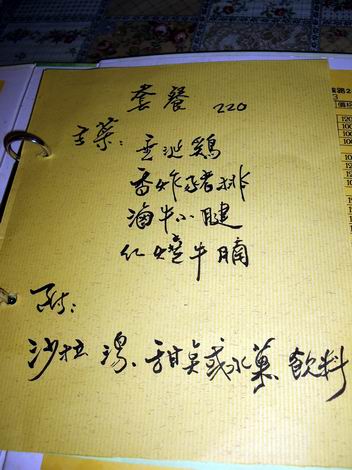 套餐 220
主菜:垂涎鷄
香炸豬排
滷牛小腱
紅燒牛腩
附:
沙拉 湯、甜点或水菓 飲料